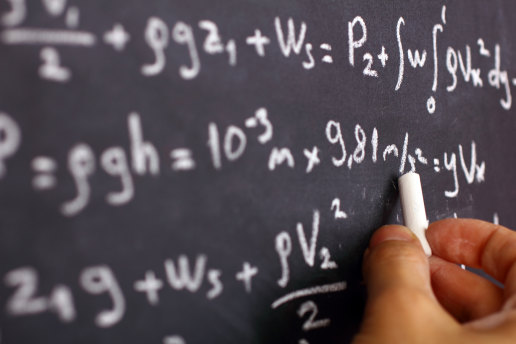 ρV₁/2 + ρgz₁ + Ws = P₂ + ∫w∫₀¹ρVx²dy
= ρgh = 10⁻³ m × 9,81 m/s² = yVx
z₁g + Ws + ρV₂²/2